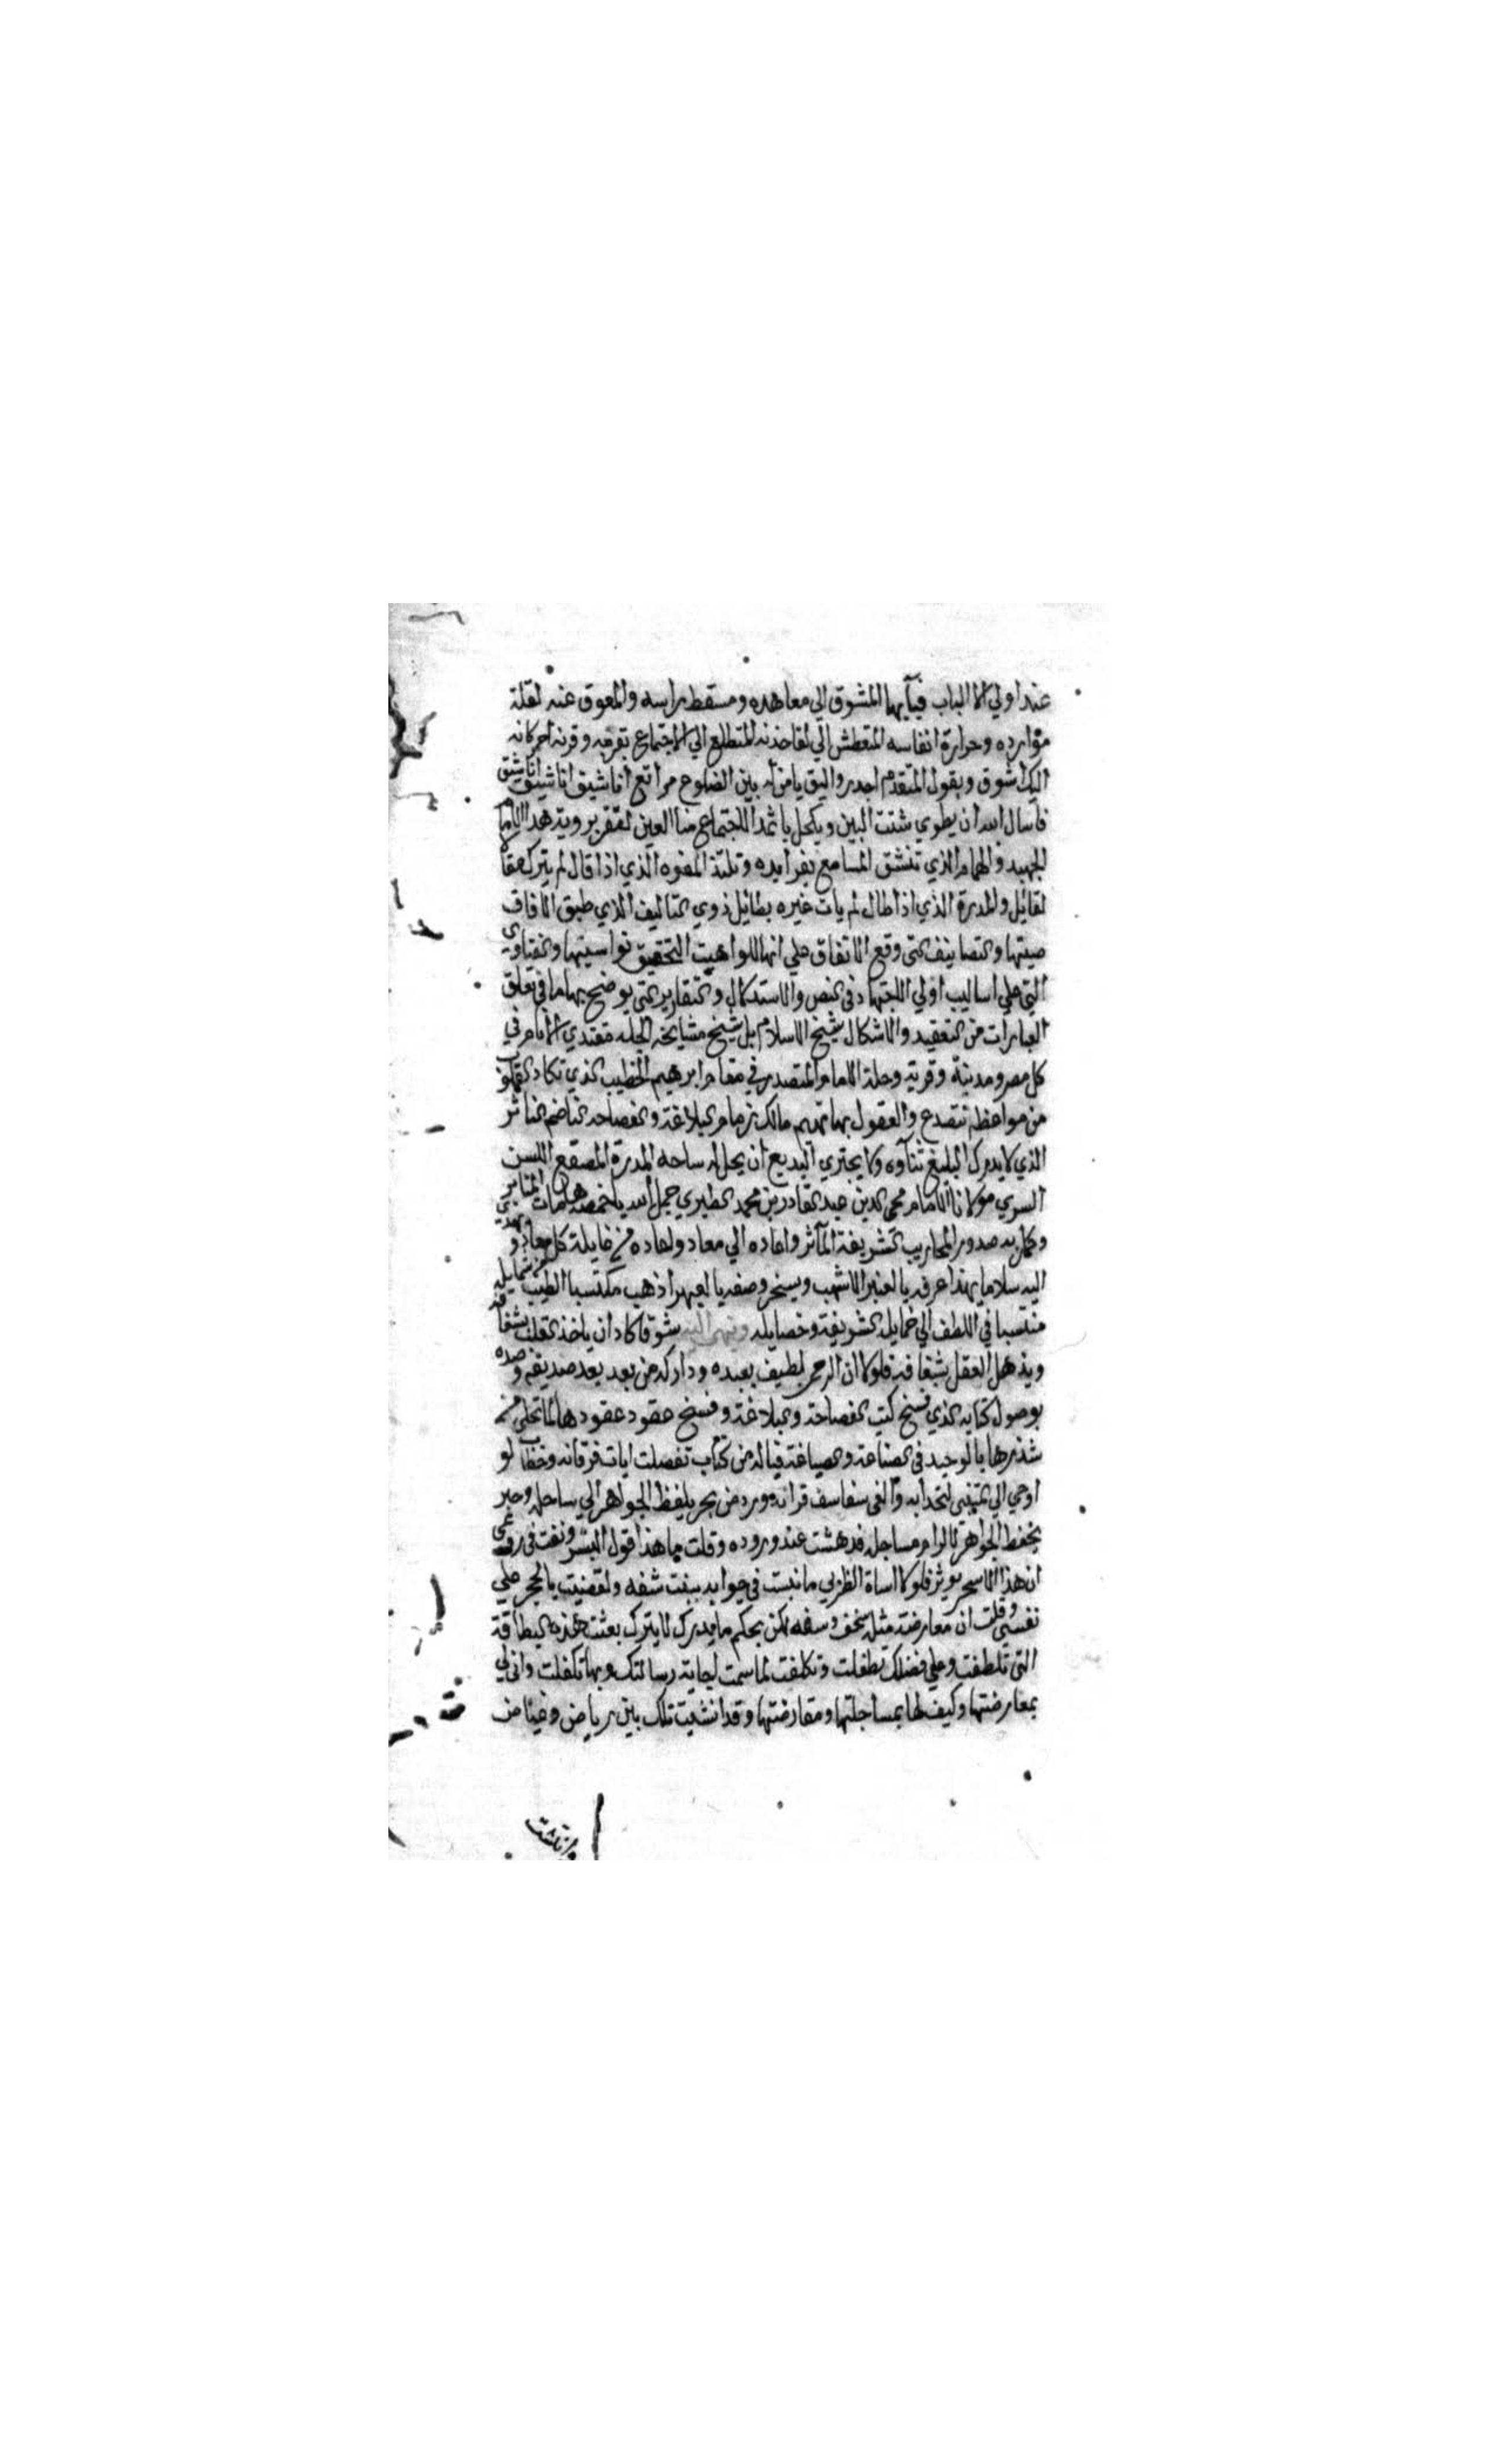 عند اولي الالباب فيايها المشوق الي معاهده ومسقط راسه والمعوق عنه لقلة
موارده وحرارة انفاسه المتعطش الي لقا خدنه المتطلع الي الاجتماع بتربه وقرنه احركانه
اليك اشوق وبقول المتقدم اجدر واليق يا من له بين الضلوع مراتع انا شيق انا شيق انا شيق
فاسال الله ان يطوي شتت البين ويكحل باثمد الاجتماع منا العين لتقرير ويد هذا الامام
الجهبد والهمام الذي تتشنق المسامع بفرايده وتلتذ المفوه الذي اذا قال لم يترك مقالا
لقائل والمدرة الذي اذا طال لم يات غيره بطائل ذوي التاليف الذي طبق الافاق
صيتها والتصانيف التي وقع الاتفاق علي انها للواهيت التحقيق نواسيتها والفتاوي
التي علي اساليب اولي الاجتهاد في النص والاستدلال والتقارير التي يوضح بها ما في تعلق
العبارات من التعقيد والاشكال شيخ الاسلام بل شيخ مشايخه الجله مقتدي الانام في
كل مصر ومدينة وقرية وحلة الامام المتصدر في مقام ابرهيم الخطيب الذي تكاد القلوب
من مواعظه تتصدع والعقول بها تهيم مالك زمام البلاغة والفصاحه الناظم الناثر
الذي لا يدرك البليغ ثناوه ولا يجتري البديع ان يحل له ساحه المدرة المصقع اللسن
السري مولانا الامام محي الدين عبد القادر بن محمد الطبري جمل الله باخمصه هامات المنابر
وكمل به صدور المحاريب الشريفة المآثر واعاده الي معاد ولعاده من غايلة كل معاد ويهدي
اليه سلاما يهذا عرفه بالعنبر الاشهب ويسخر وصفه بالعبهر اذهب مكتسبا الطيب من شمايله
منتسبا في اللطف الي خمايله الشريفة وخصايله وينهي اليه شوقا كاد ان ياخذ القلب بشغافه
ويذهل العقل بشغافه فلولا ان الرحمن لطيف بعبده وداركه من بعد بعد صديقه وصده
بوصول كتابه الذي نسخ كتب الفصاحة والبلاغة وفسخ عقود عقودها لما تحلي من
شذرها بالوحيد في الصناعة والصياغة فياله من كتاب تفصلت ايات فرقانه وخطاب لو
اوحي الي المتنبي لتحدا به والغي سفاسف قرانه وورد من بحر يلفظ الجواهر الي ساحله وحبر
يحفظ الجواهر لا لوام مساجله فدهشت عند وروده وقلت ما هذا قول البشر ونفث في روعي
ان هذا الا سحر يوثر فلولا اساة الظن بي ما نبست في جوابه ببنت شفه ولقضيت بالحجر علي
نفسي وقلت ان معارضة مثله سخف وسفه لكن بحكم ما يدرك لا يترك بعثت هذه البطاقة
التي تلطفت وعلي فضلك تطفلت وتكلفت لما سمت لجابة رسالتك وبها تكفلت واني لي
بمعارضتها وكيف لها بمساجلتها ومقارضتها وقد انشيت تلك بين رياض وغياض
وانتشت